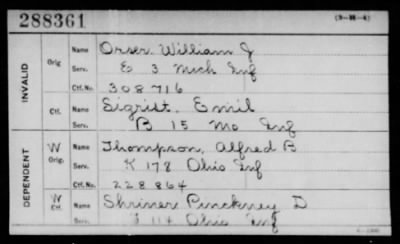 288361 (3-M-4)
INVALID Orig Name Orser William J
Serv. E 3 Mich Inf
Ctf. No. 308716
Ctf. Name Sigrist, Emil
Serv. B 15 Mo Inf
DEPENDENT W Orig. Name Thompson, Alfred B
Serv. K 178 Ohio Inf
Ctf. No. 228864
W Ctf. Name Shriner Pinckney D
Serv. 114 Ohio Inf